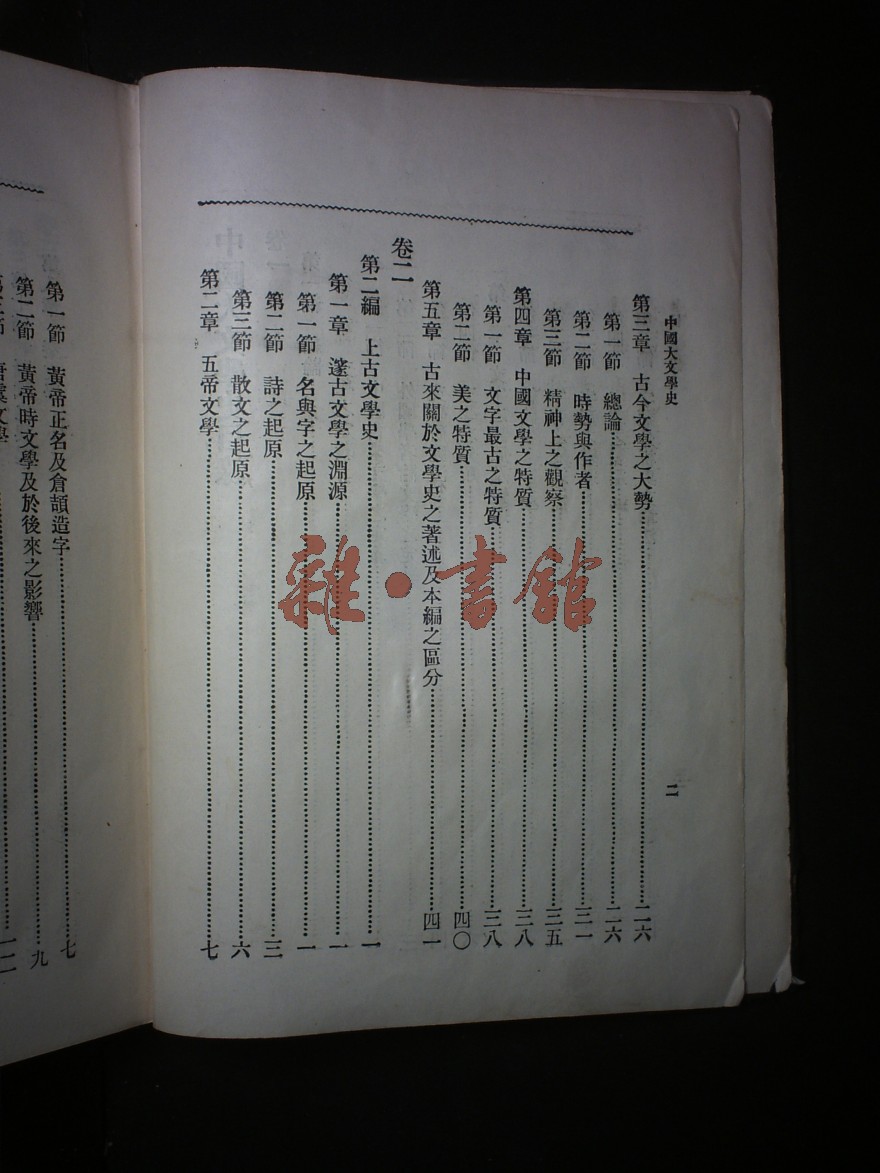 中國大文學史
二
第三章　古今文學之大勢……二六
第一節　總論……二六
第二節　時勢與作者……三一
第三節　精神上之觀察……三五
第四章　中國文學之特質……三八
第一節　文字最古之特質……三八
第二節　美之特質……四〇
第五章　古來關於文學史之著述及本編之區分……四一
卷二
第二編　上古文學史……一
第一章　邃古文學之淵源……一
第一節　名與字之起原……一
第二節　詩之起原……三
第三節　散文之起原……六
第二章　五帝文學……七
第一節　黃帝正名及倉頡造字……七
第二節　黃帝時文學及於後來之影響……九
雜·書館